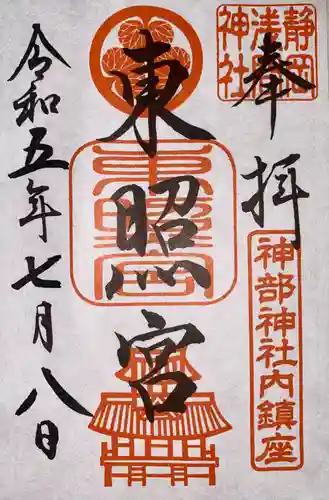 奉拝
静岡
浅間
神社
神部神社内鎮座
東照宮
東照宮
令和五年七月八日